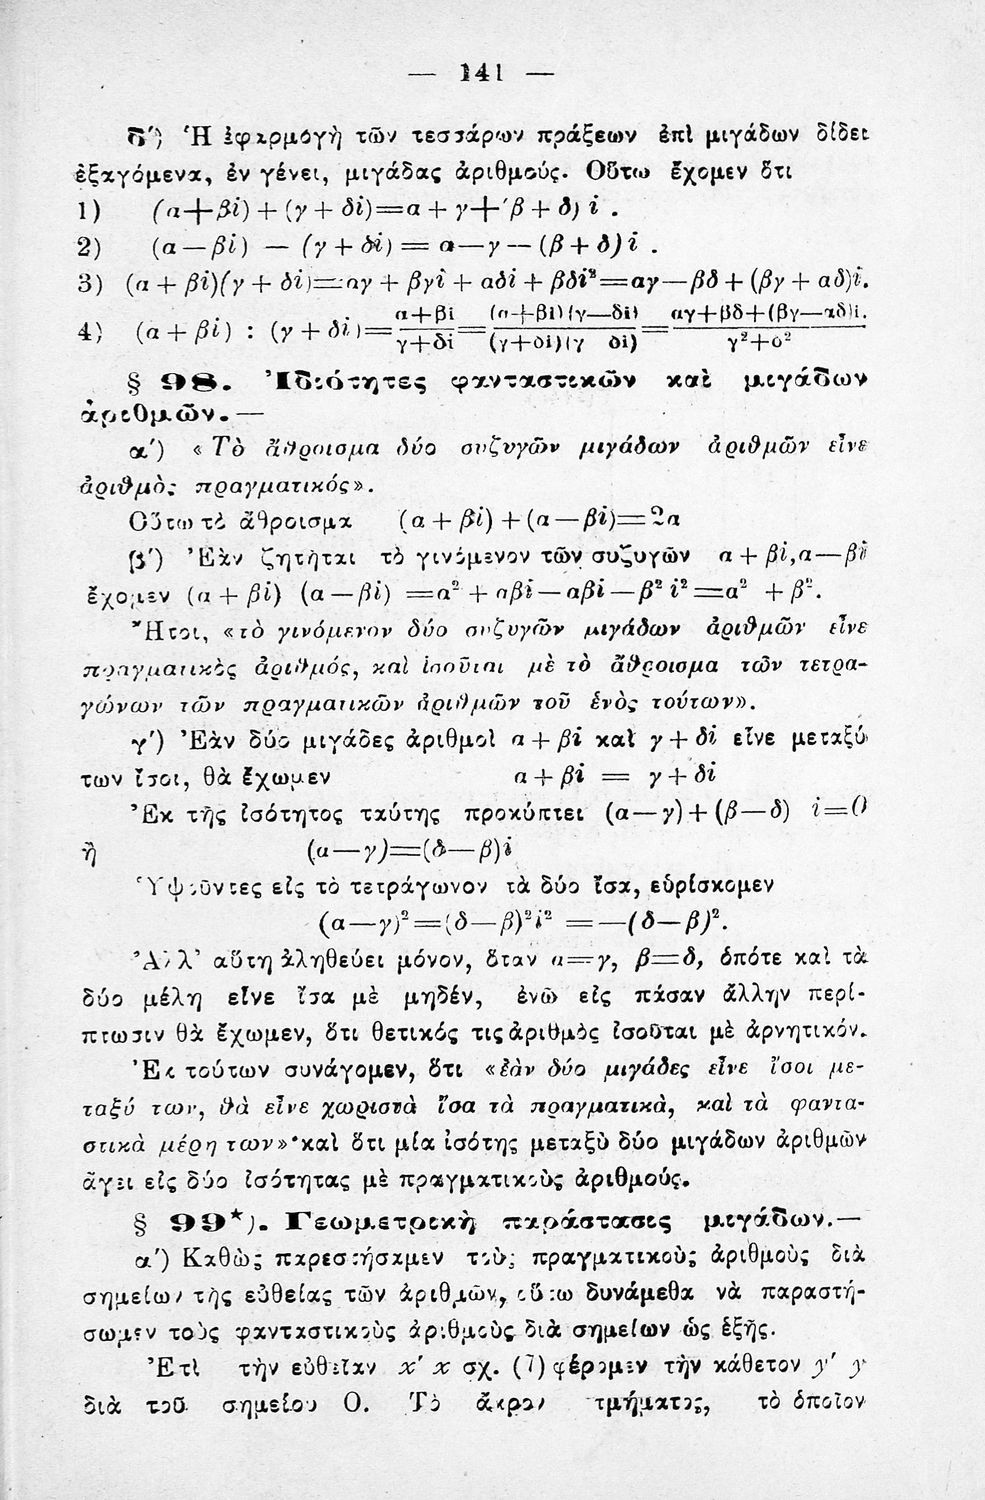 — 141 —
δ') Ἡ ἐφαρμογὴ τῶν τεσσάρων πράξεων ἐπὶ μιγάδων δίδει
ἐξαγόμενα, ἐν γένει, μιγάδας ἀριθμούς. Οὕτω ἔχομεν ὅτι
1) (α+βi)+(γ+δi)=α+γ+(β+δ) i .
2) (α—βi) — (γ+δi)= α—γ—(β+δ)i .
3) (α+βi)(γ+δi)=αγ+βγi+αδi+βδi²=αγ—βδ+(βγ+αδ)i.
4) (α+βi) : (γ+δi)= α+βi/γ+δi = (α+βi)(γ—δi)/(γ+δi)(γ δi) = αγ+βδ+(βγ—αδ)i./γ²+δ²
§ 98. Ἰδιότητες φανταστικῶν καὶ μιγάδων
ἀριθμῶν.—
α') «Τὸ ἄθροισμα δύο συζυγῶν μιγάδων ἀριθμῶν εἶνε
ἀριθμὸς πραγματικός».
Οὕτω τὸ ἄθροισμα (α+βi)+(α—βi)=2α
β') Ἐὰν ζητῆται τὸ γινόμενον τῶν συζυγῶν α+βi,α—βi
ἔχομεν (α+βi) (α—βi) =α²+αβi—αβi—β² i²=α² +β².
Ἤτοι, «τὸ γινόμενον δύο συζυγῶν μιγάδων ἀριθμῶν εἶνε
πραγματικὸς ἀριθμός, καὶ ἰσοῦται μὲ τὸ ἄθροισμα τῶν τετρα-
γώνων τῶν πραγματικῶν ἀριθμῶν τοῦ ἑνὸς τούτων».
γ') Ἐὰν δύο μιγάδες ἀριθμοὶ α+βi καὶ γ+δi εἶνε μεταξύ
των ἴσοι, θὰ ἔχωμεν α+βi = γ+δi
Ἐκ τῆς ἰσότητος ταύτης προκύπτει (α—γ)+(β—δ) i=0
ἢ (α—γ)=(δ—β)i
Ὑψοῦντες εἰς τὸ τετράγωνον τὰ δύο ἴσα, εὑρίσκομεν
(α—γ)²=(δ—β)²i² =—(δ—β)².
Ἀλλ' αὕτη ἀληθεύει μόνον, ὅταν α=γ, β=δ, ὁπότε καὶ τὰ
δύο μέλη εἶνε ἴσα μὲ μηδέν, ἐνῶ εἰς πάσαν ἄλλην περί-
πτωσιν θὰ ἔχωμεν, ὅτι θετικός τις ἀριθμὸς ἰσοῦται μὲ ἀρνητικόν.
Ἐκ τούτων συνάγομεν, ὅτι «ἐὰν δύο μιγάδες εἶνε ἴσοι με-
ταξύ των, θὰ εἶνε χωριστὰ ἴσα τὰ πραγματικά, καὶ τὰ φαντα-
στικὰ μέρη των»·καὶ ὅτι μία ἰσότης μεταξὺ δύο μιγάδων ἀριθμῶν
ἄγει εἰς δύο ἰσότητας μὲ πραγματικοὺς ἀριθμούς.
§ 99*). Γεωμετρικὴ παράστασις μιγάδων.—
α') Καθὼς παρεστήσαμεν τοὺς πραγματικοὺς ἀριθμοὺς διὰ
σημείων τῆς εὐθείας τῶν ἀριθμῶν, οὕτω δυνάμεθα νὰ παραστή-
σωμεν τοὺς φανταστικοὺς ἀριθμοὺς διὰ σημείων ὡς ἑξῆς.
Ἐπὶ τὴν εὐθεῖαν x' x σχ. (7) φέρομεν τὴν κάθετον y' y
διὰ τοῦ σημείου Ο. Τὸ ἄκρον τμήματος, τὸ ὁποῖον